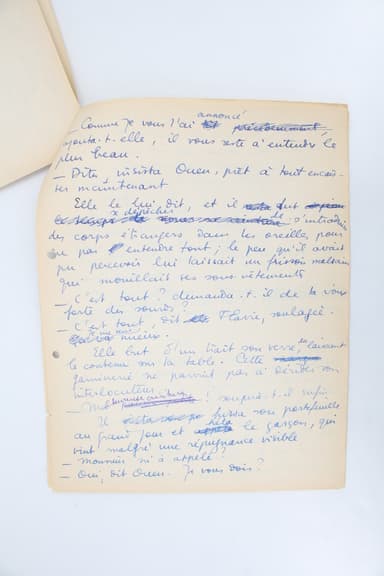 annoncé
— Comme je vous l'ai
ajouta-t-elle, il vous reste à entendre le
plus beau.
— Dites, insista Owen, prêt à tout encais-
ser maintenant
Elle le lui dit, et il fut
se dépêcher de s'introduire
des corps étrangers dans les oreilles pour
ne pas entendre tout ; le peu qu'il avait
pu percevoir lui laissait un frisson malsain
qui mouillait ses sous-vêtements
— C'est tout ? demanda-t-il de la voix
forte des sourds ?
— C'est tout, dit Flavie, soulagée.
mieux.
Elle but d'un trait son verre, laissant
le contenu sur la table. Cette
gaminerie ne parvint pas à dérider son
interlocuteur
! soupira-t-il enfin
Il hissa son portefeuille
au grand jour et héla le garçon, qui
vint malgré une répugnance visible
— Monsieur m'a appelé ?
— Oui, dit Owen. Je vous dois ?